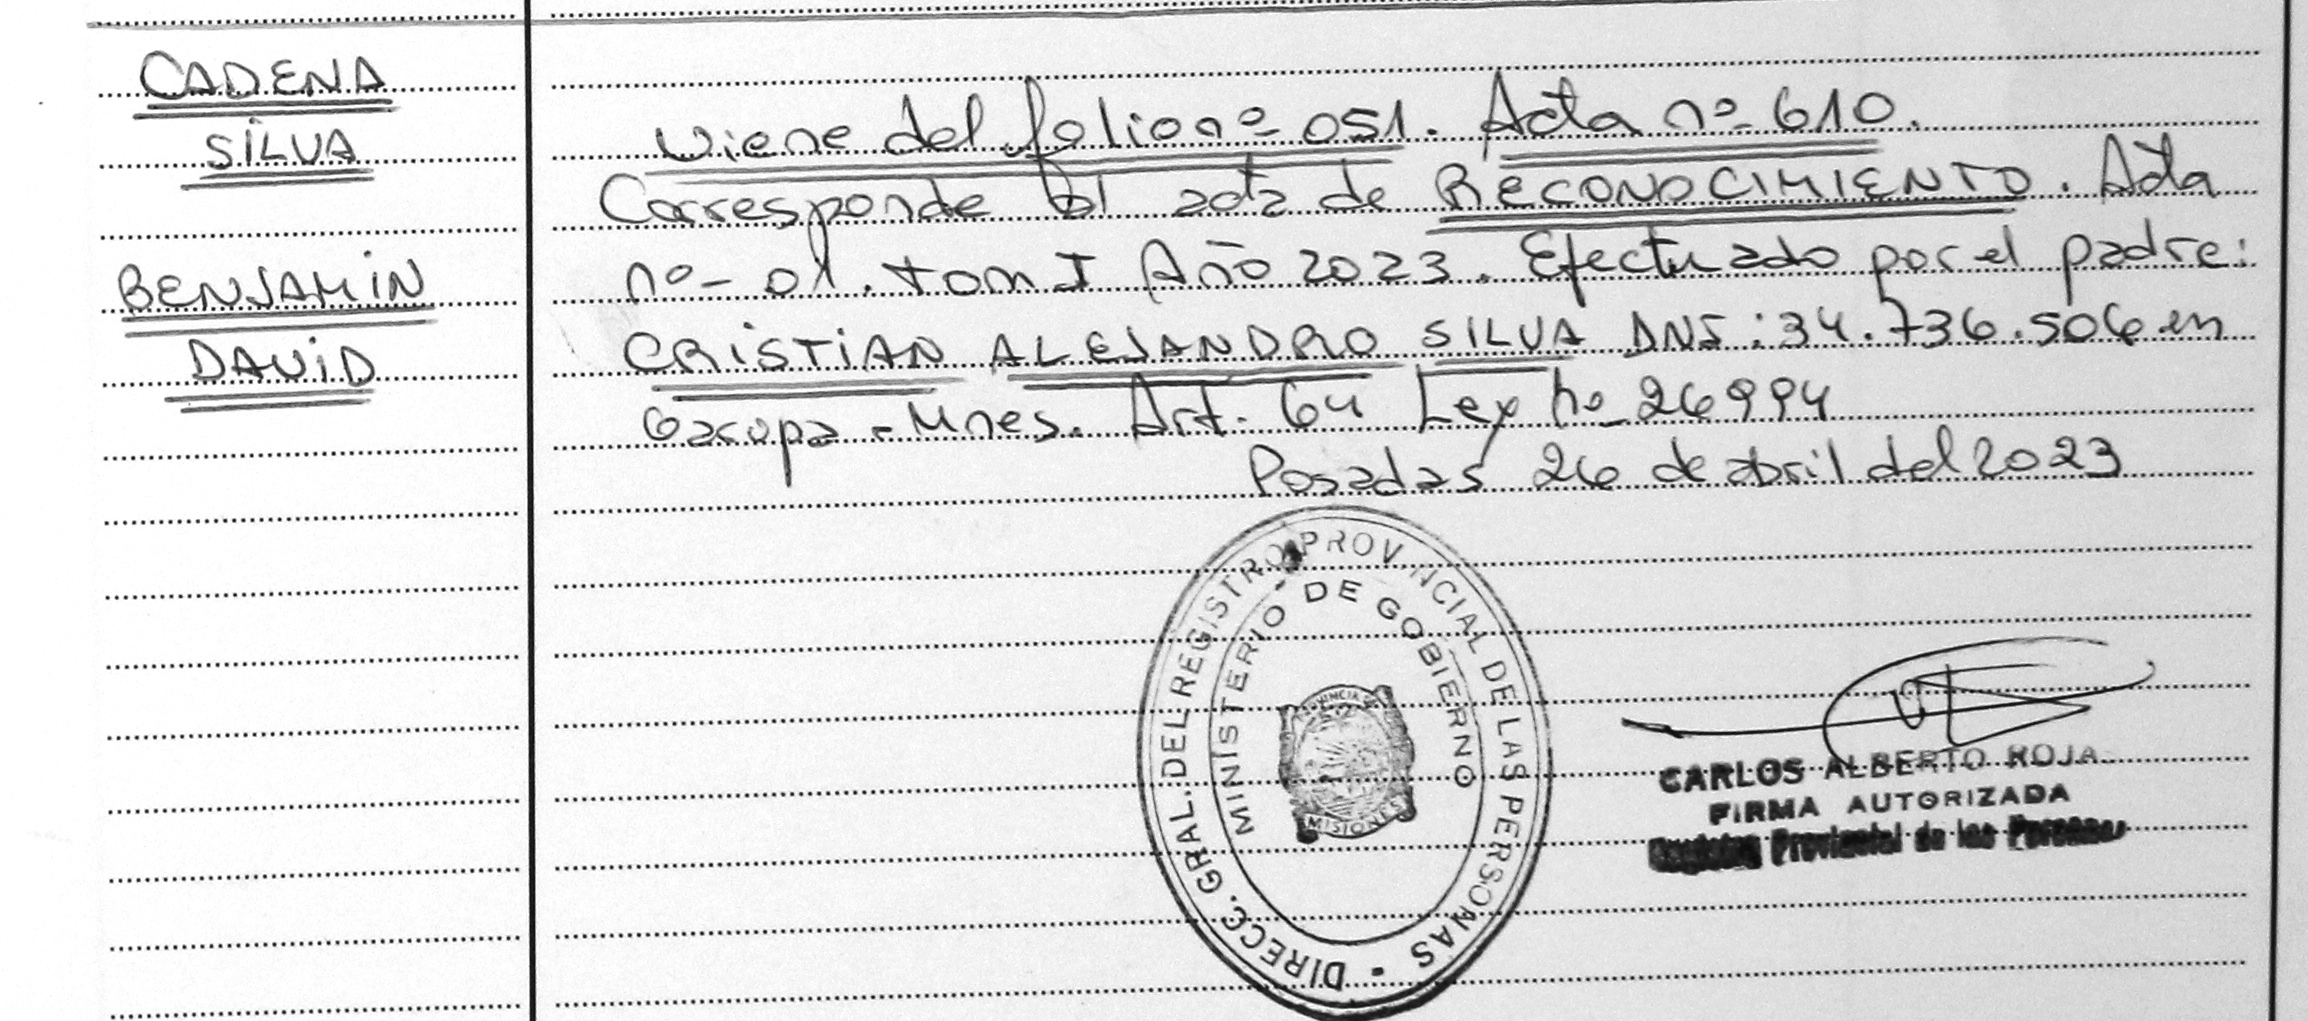 CADENA
SILVA
BENJAMIN
DAVID
viene del folio nº 051. Acta nº 610.
Corresponde al acta de RECONOCIMIENTO. Acta
nº- 01. tom I Año 2023. Efectuado por el padre:
CRISTIAN ALEJANDRO SILVA DNI: 34.736.506 en
Garupa - Mnes. Art. 64 Ley nº 26994
Posadas 26 de abril del 2023
DIRECC. GRAL. DEL REGISTRO PROVINCIAL DE LAS PERSONAS
MINISTERIO DE GOBIERNO
PROVINCIA DE
MISIONES
CARLOS ALBERTO ROJA
FIRMA AUTORIZADA
Registro Provincial de las Personas